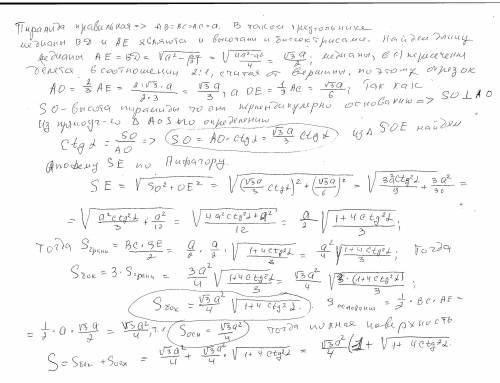 Пирамида правильная => AB=BC=AC=a. В таком треугольнике
медианы BД и AE являются и высотами и биссектрисами. Найдем длину
медианы AE=BД=√(a²-a²/4)=√((4a²-a²)/4)=√3a/2; медианы, в (·) пересечения
делятся в соотношении 2:1, считая от вершины, поэтому отрезок
AO=2/3 AE=(2·√3·a)/(2·3)=√3a/3, а OE=1/3 AE=√3a/6; Так как
SO-высота пирамиды то она перпендикулярно основанию=> SO⊥AO
Из прямоуг-го △AOS по определению
Ctg α=SO/AO => SO=AO·Ctgα=√3a/3 Ctgα из △SOE найдем
апофему SE по Пифагору.
SE=√(SO²+OE²)=√((√3a/3 Ctgα)²+(√3a/6)²)=√(3a²Ctg²α/9+3a²/36)=
=√(a²Ctg²α/3+a²/12)=√((4a²Ctg²α+a²)/12)=a/2√((1+4Ctg²α)/3);
тогда Sграни=BC·SE/2=a/2·a/2·√((1+4Ctg²α)/3)=a²/4√((1+4Ctg²α)/3); Тогда
Sбок=3·Sграни=3a²/4√((1+4Ctg²α)/3)=√3a²/4√(3·(1+4Ctg²α)/3);
Sбок=√3a²/4√(1+4Ctg²α). Sоснования=1/2·BC·AE=
=1/2·a·√3a/2=√3a²/4, т.е. Sосн=√3a²/4 тогда полная поверхность
S=Sбок+Sосн=√3a²/4+√3a²/4·√(1+4Ctg²α)=√3a²/4(1+√(1+4Ctg²α.